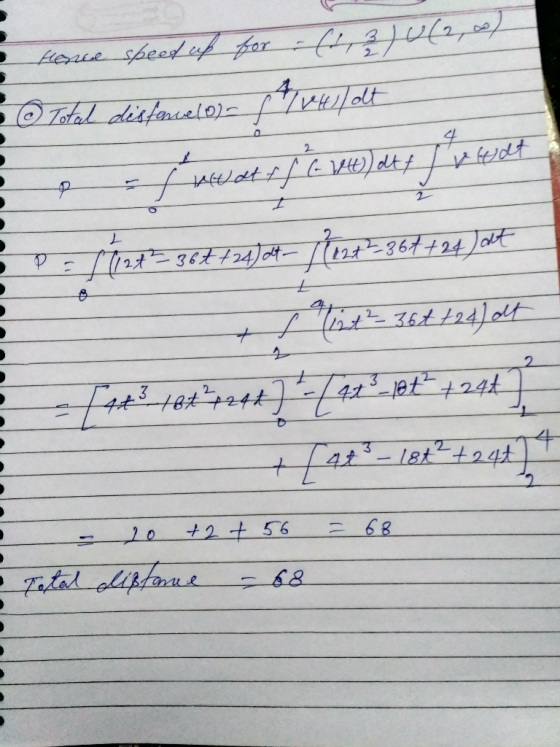 Hence speed up for = (1, 3/2) ∪ (2, ∞)
ⓒ Total distance(D) = ∫₀⁴ |v(t)| dt
D = ∫₀¹ v(t) dt + ∫₁² (-v(t)) dt + ∫₂⁴ v(t) dt
D = ∫₀¹ (12t² - 36t + 24) dt - ∫₁² (12t² - 36t + 24) dt
+ ∫₂⁴ (12t² - 36t + 24) dt
= [4t³ - 18t² + 24t]₀¹ - [4t³ - 18t² + 24t]₁²
+ [4t³ - 18t² + 24t]₂⁴
= 10 + 2 + 56 = 68
Total distance = 68